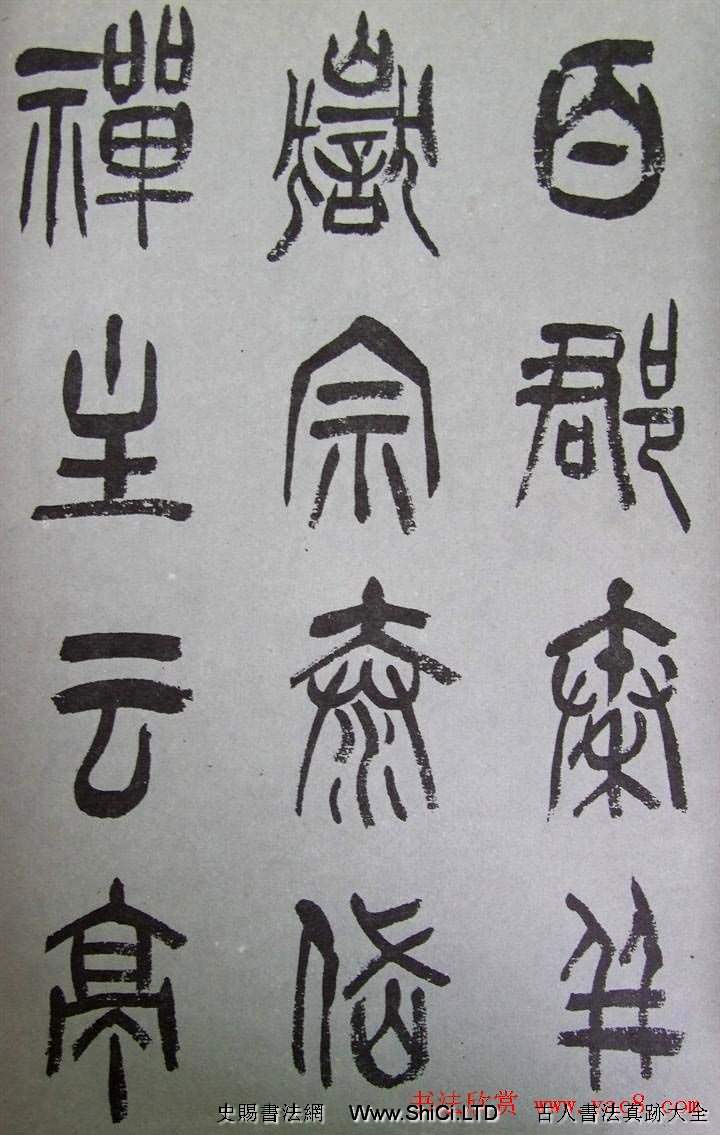 百郡秦并
嶽宗泰岱
禪主云亭
书法欣赏 www.yac8.com
史賜書法網 Www.ShiCi.LTD 古人書法真跡大全